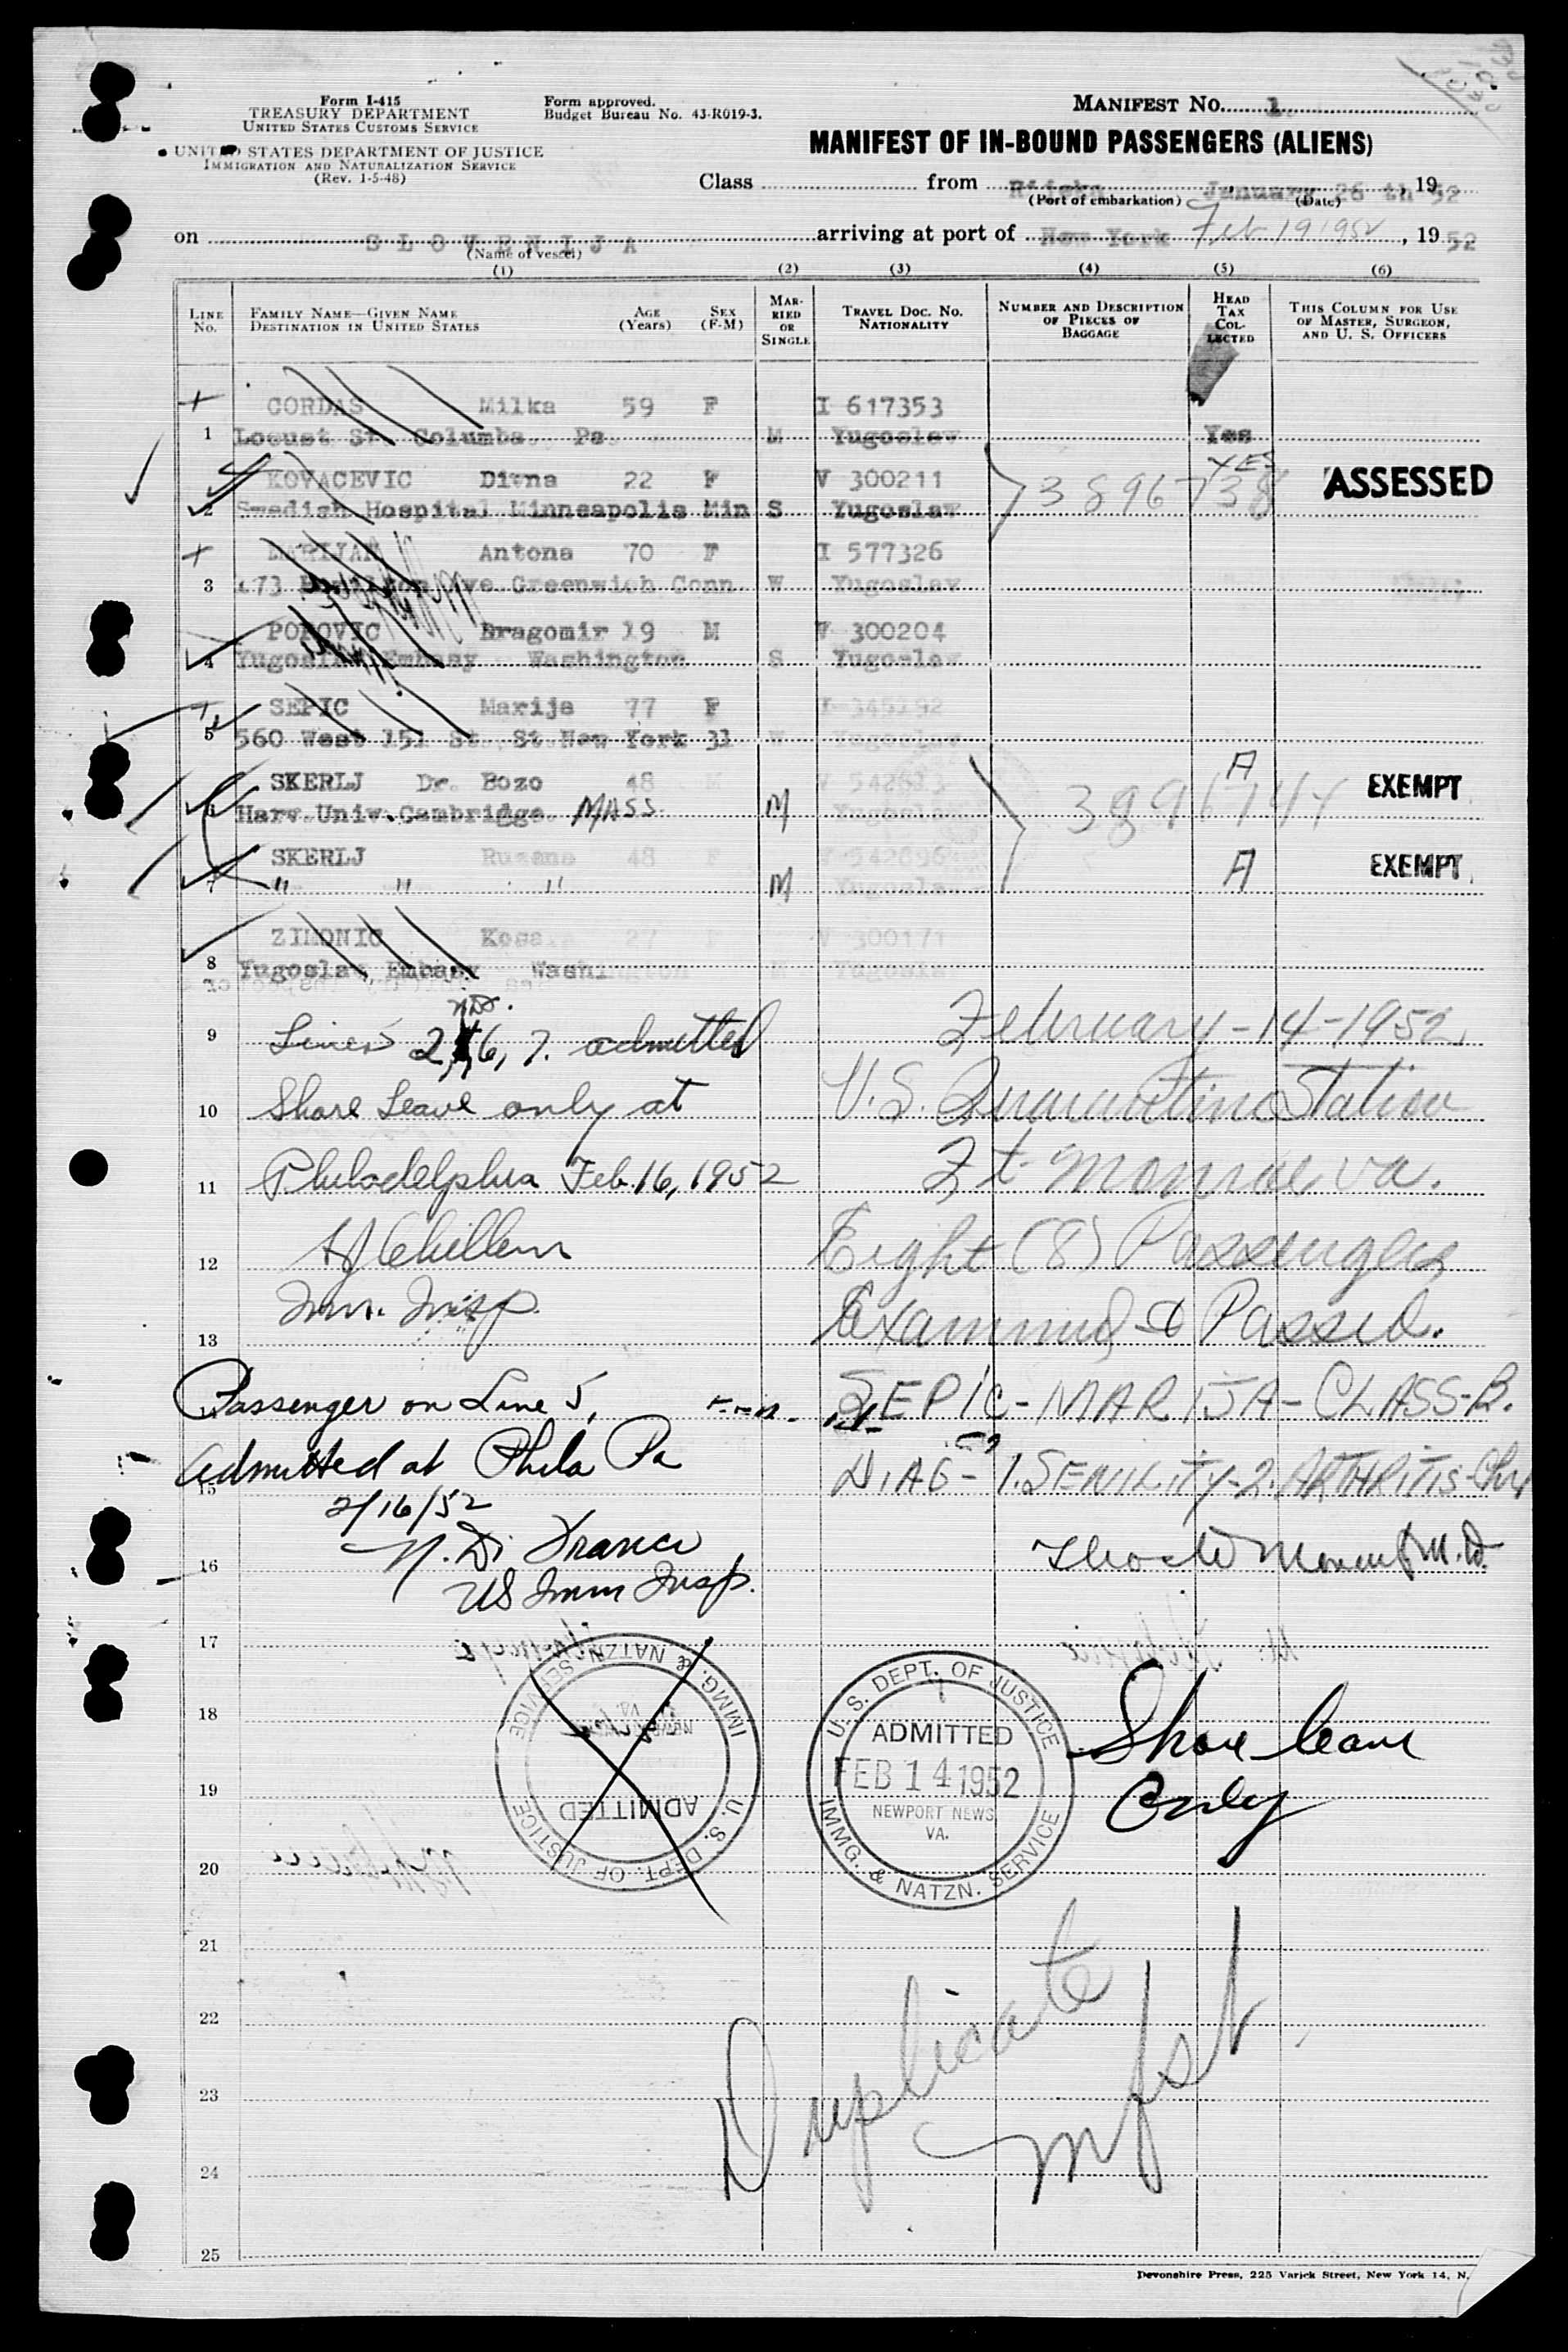 Form I-415
TREASURY DEPARTMENT
UNITED STATES CUSTOMS SERVICE
UNITED STATES DEPARTMENT OF JUSTICE
IMMIGRATION AND NATURALIZATION SERVICE
(Rev. 1-5-48)
Form approved.
Budget Bureau No. 43-R019-3.
MANIFEST No. 1
MANIFEST OF IN-BOUND PASSENGERS (ALIENS)
Class from Rijeka January 26 th, 19 52
(Port of embarkation) (Date)
on SLOVENIJA arriving at port of New York Feb 19 1952, 19 52
(Name of vessel)
(1) (2) (3) (4) (5) (6)
LINE No. FAMILY NAME—GIVEN NAME DESTINATION IN UNITED STATES AGE (Years) SEX (F-M) MARRIED OR SINGLE TRAVEL DOC. NO. NATIONALITY NUMBER AND DESCRIPTION OF PIECES OF BAGGAGE HEAD TAX COLLECTED THIS COLUMN FOR USE OF MASTER, SURGEON, AND U. S. OFFICERS
CORDAS Milka 59 F I 617353
1 Locust St. Columba Pa. M Yugoslav Yes
KOVACEVIC Diana 22 F V 300211 3896738 YES ASSESSED
2 Swedish Hospital Minneapolis Min S Yugoslav
MARIJAN Antona 70 F I 577326
3 Ave Greenwich Conn W Yugoslav
POPOVIC Dragomir 19 M V 300204
4 Yugoslav Embasy Washington S Yugoslav
SEPIC Marija 77 F I 345192
5 560 West 151 St. St New York 31 W Yugoslav
SKERLJ Dr. Bozo 48 M V 542613 3896744 A EXEMPT
6 Harv.Univ.Cambridge MASS M Yugoslav
SKERLJ Ruzana 48 F V 542696 A EXEMPT
7 " " " M Yugoslav
ZIMONIC Kosa 27 F V 300171
8 Yugoslav Embasy Washington M Yugoslav
9 Lines 2, 6, 7. admitted
N.D.
10 Shore Leave only at
11 Philadelphia Feb. 16, 1952
12
13 Imm. Insp.
February-14-1952
U.S. Quarantine Station
Ft. Monroe Va.
Eight (8) Passengers
Examined & Passed.
Passenger on Line 5,
Admitted at Phila Pa
15
2/16/52
N. Di
16
US Imm Insp.
SEPIC-MARIJA-CLASS-B.
DIAG-1.SENILITY-2.ARTHRITIS-
M.D.
17
U. S. DEPT. OF JUSTICE
ADMITTED
IMMG. & NATZN. SERVICE
U. S. DEPT. OF JUSTICE
ADMITTED
FEB 14 1952
NEWPORT NEWS
VA.
IMMG. & NATZN. SERVICE
18 Shore leave
19 Only
20
21
22 Duplicate
23 mfst
24
25
Devonshire Press, 225 Varick Street, New York 14, N.